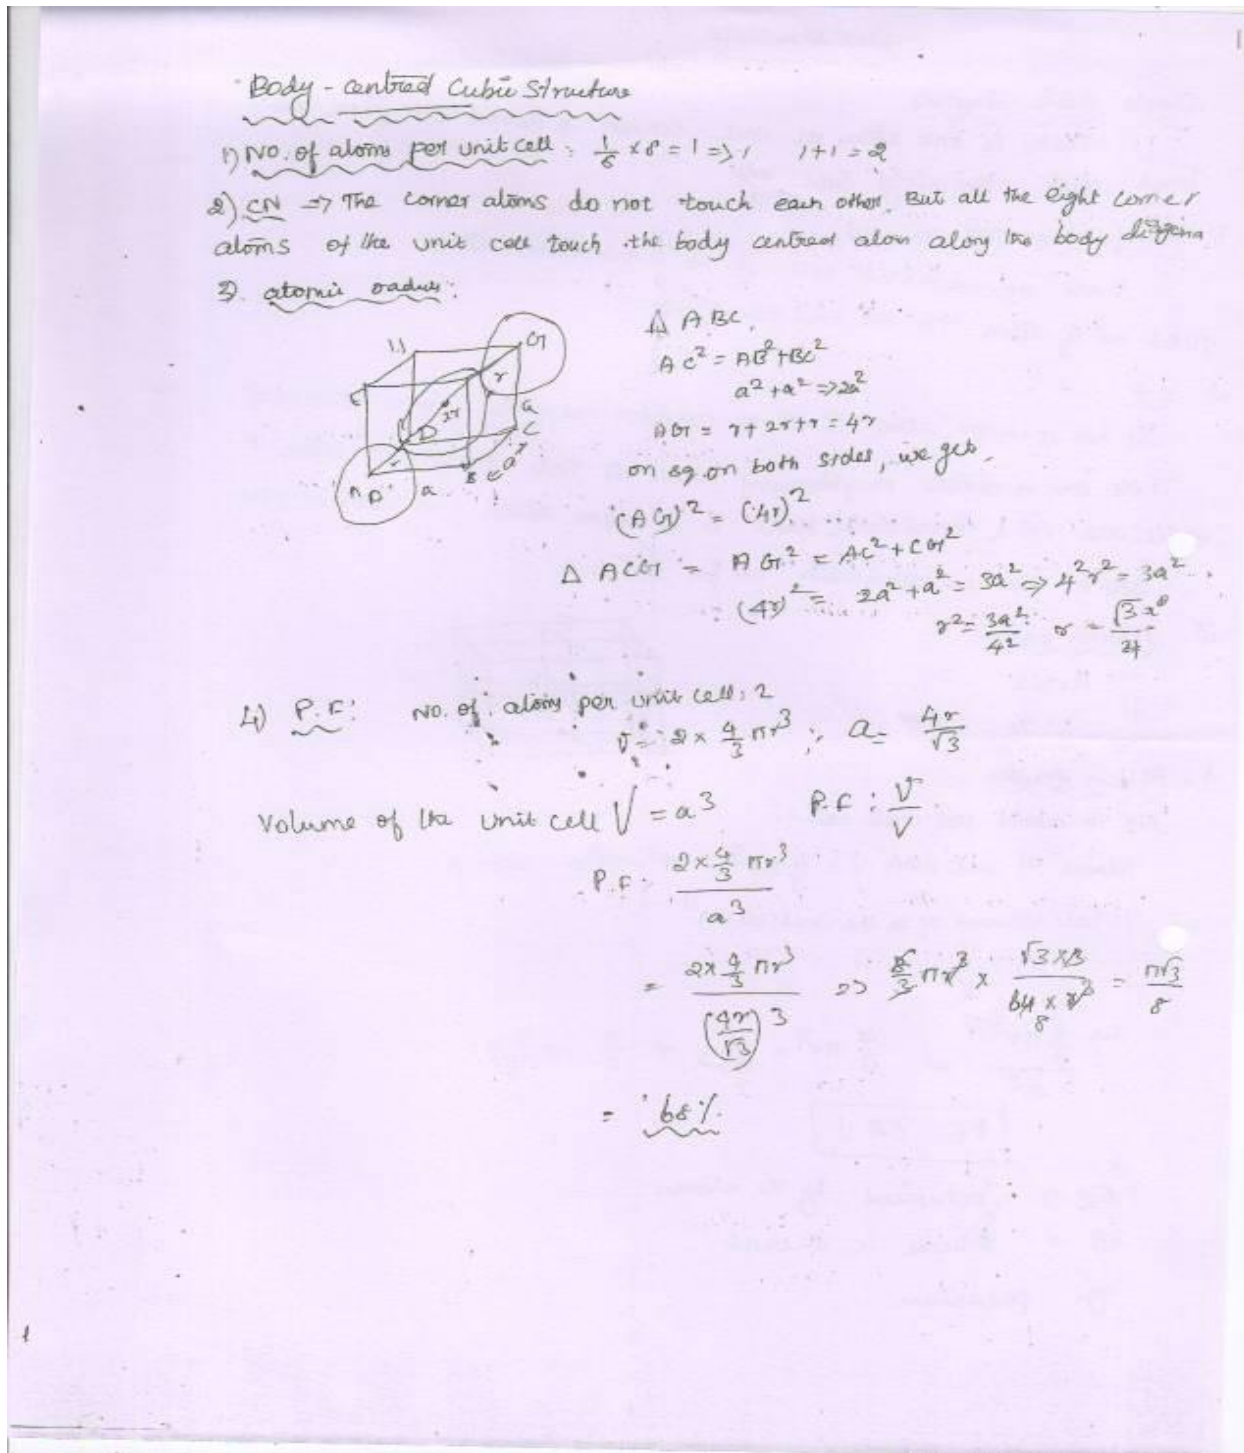 Body - centred Cubic Structure
1) No. of atoms per unit cell : 1/8 × 8 = 1 => 1 1+1 = 2
2) CN => The corner atoms do not touch each other. But all the eight corner
atoms of the unit cell touch the body centred atom along the body
3. atomic radius:
Δ ABC,
AC² = AB² + BC²
a² + a² => 2a²
AG = r + 2r + r = 4r
on sq. on both sides, we get,
(AG)² = (4r)²
Δ ACG = AG² = AC² + CG²
(4r)² = 2a² + a² = 3a² => 4²r² = 3a²
r² = 3a²/4² r = √3a/4
G
r
2r
D
a
C
B
a
a
r
4) P.F: No. of atoms per unit cell: 2
v = 2 × 4/3 πr³ ; a = 4r/√3
Volume of the unit cell V = a³ P.F : v/V
P.F = 2 × 4/3 πr³ / a³
= 2 × 4/3 πr³ / (4r/√3)³ => 8/3 πr³ × √3 × 3 / 64 × r³ 8 = π√3/8
= 68%